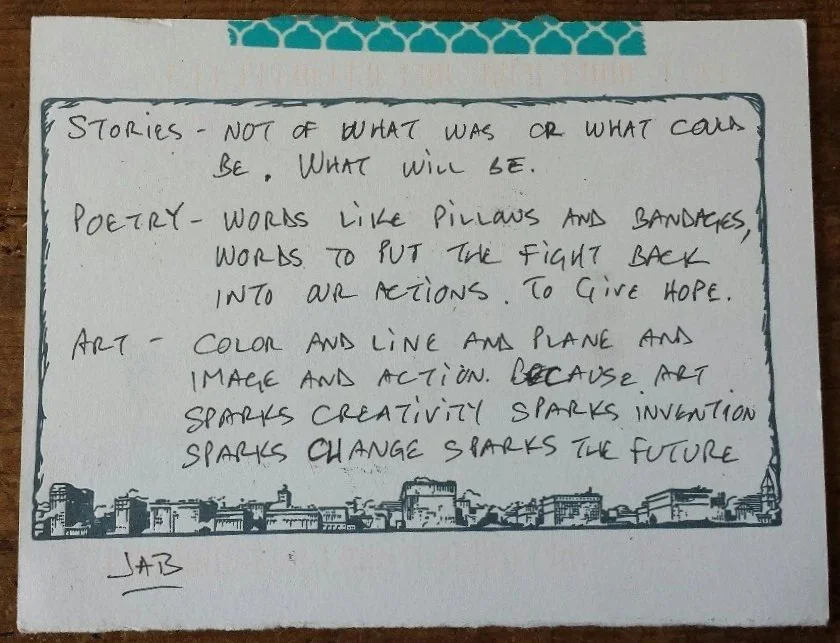 STORIES - NOT OF WHAT WAS OR WHAT COULD
BE. WHAT WILL BE.
POETRY - WORDS LIKE PILLOWS AND BANDAGES,
WORDS TO PUT THE FIGHT BACK
INTO OUR ACTIONS. TO GIVE HOPE.
ART - COLOR AND LINE AND PLANE AND
IMAGE AND ACTION. BECAUSE ART
SPARKS CREATIVITY SPARKS INVENTION
SPARKS CHANGE SPARKS THE FUTURE
JAB